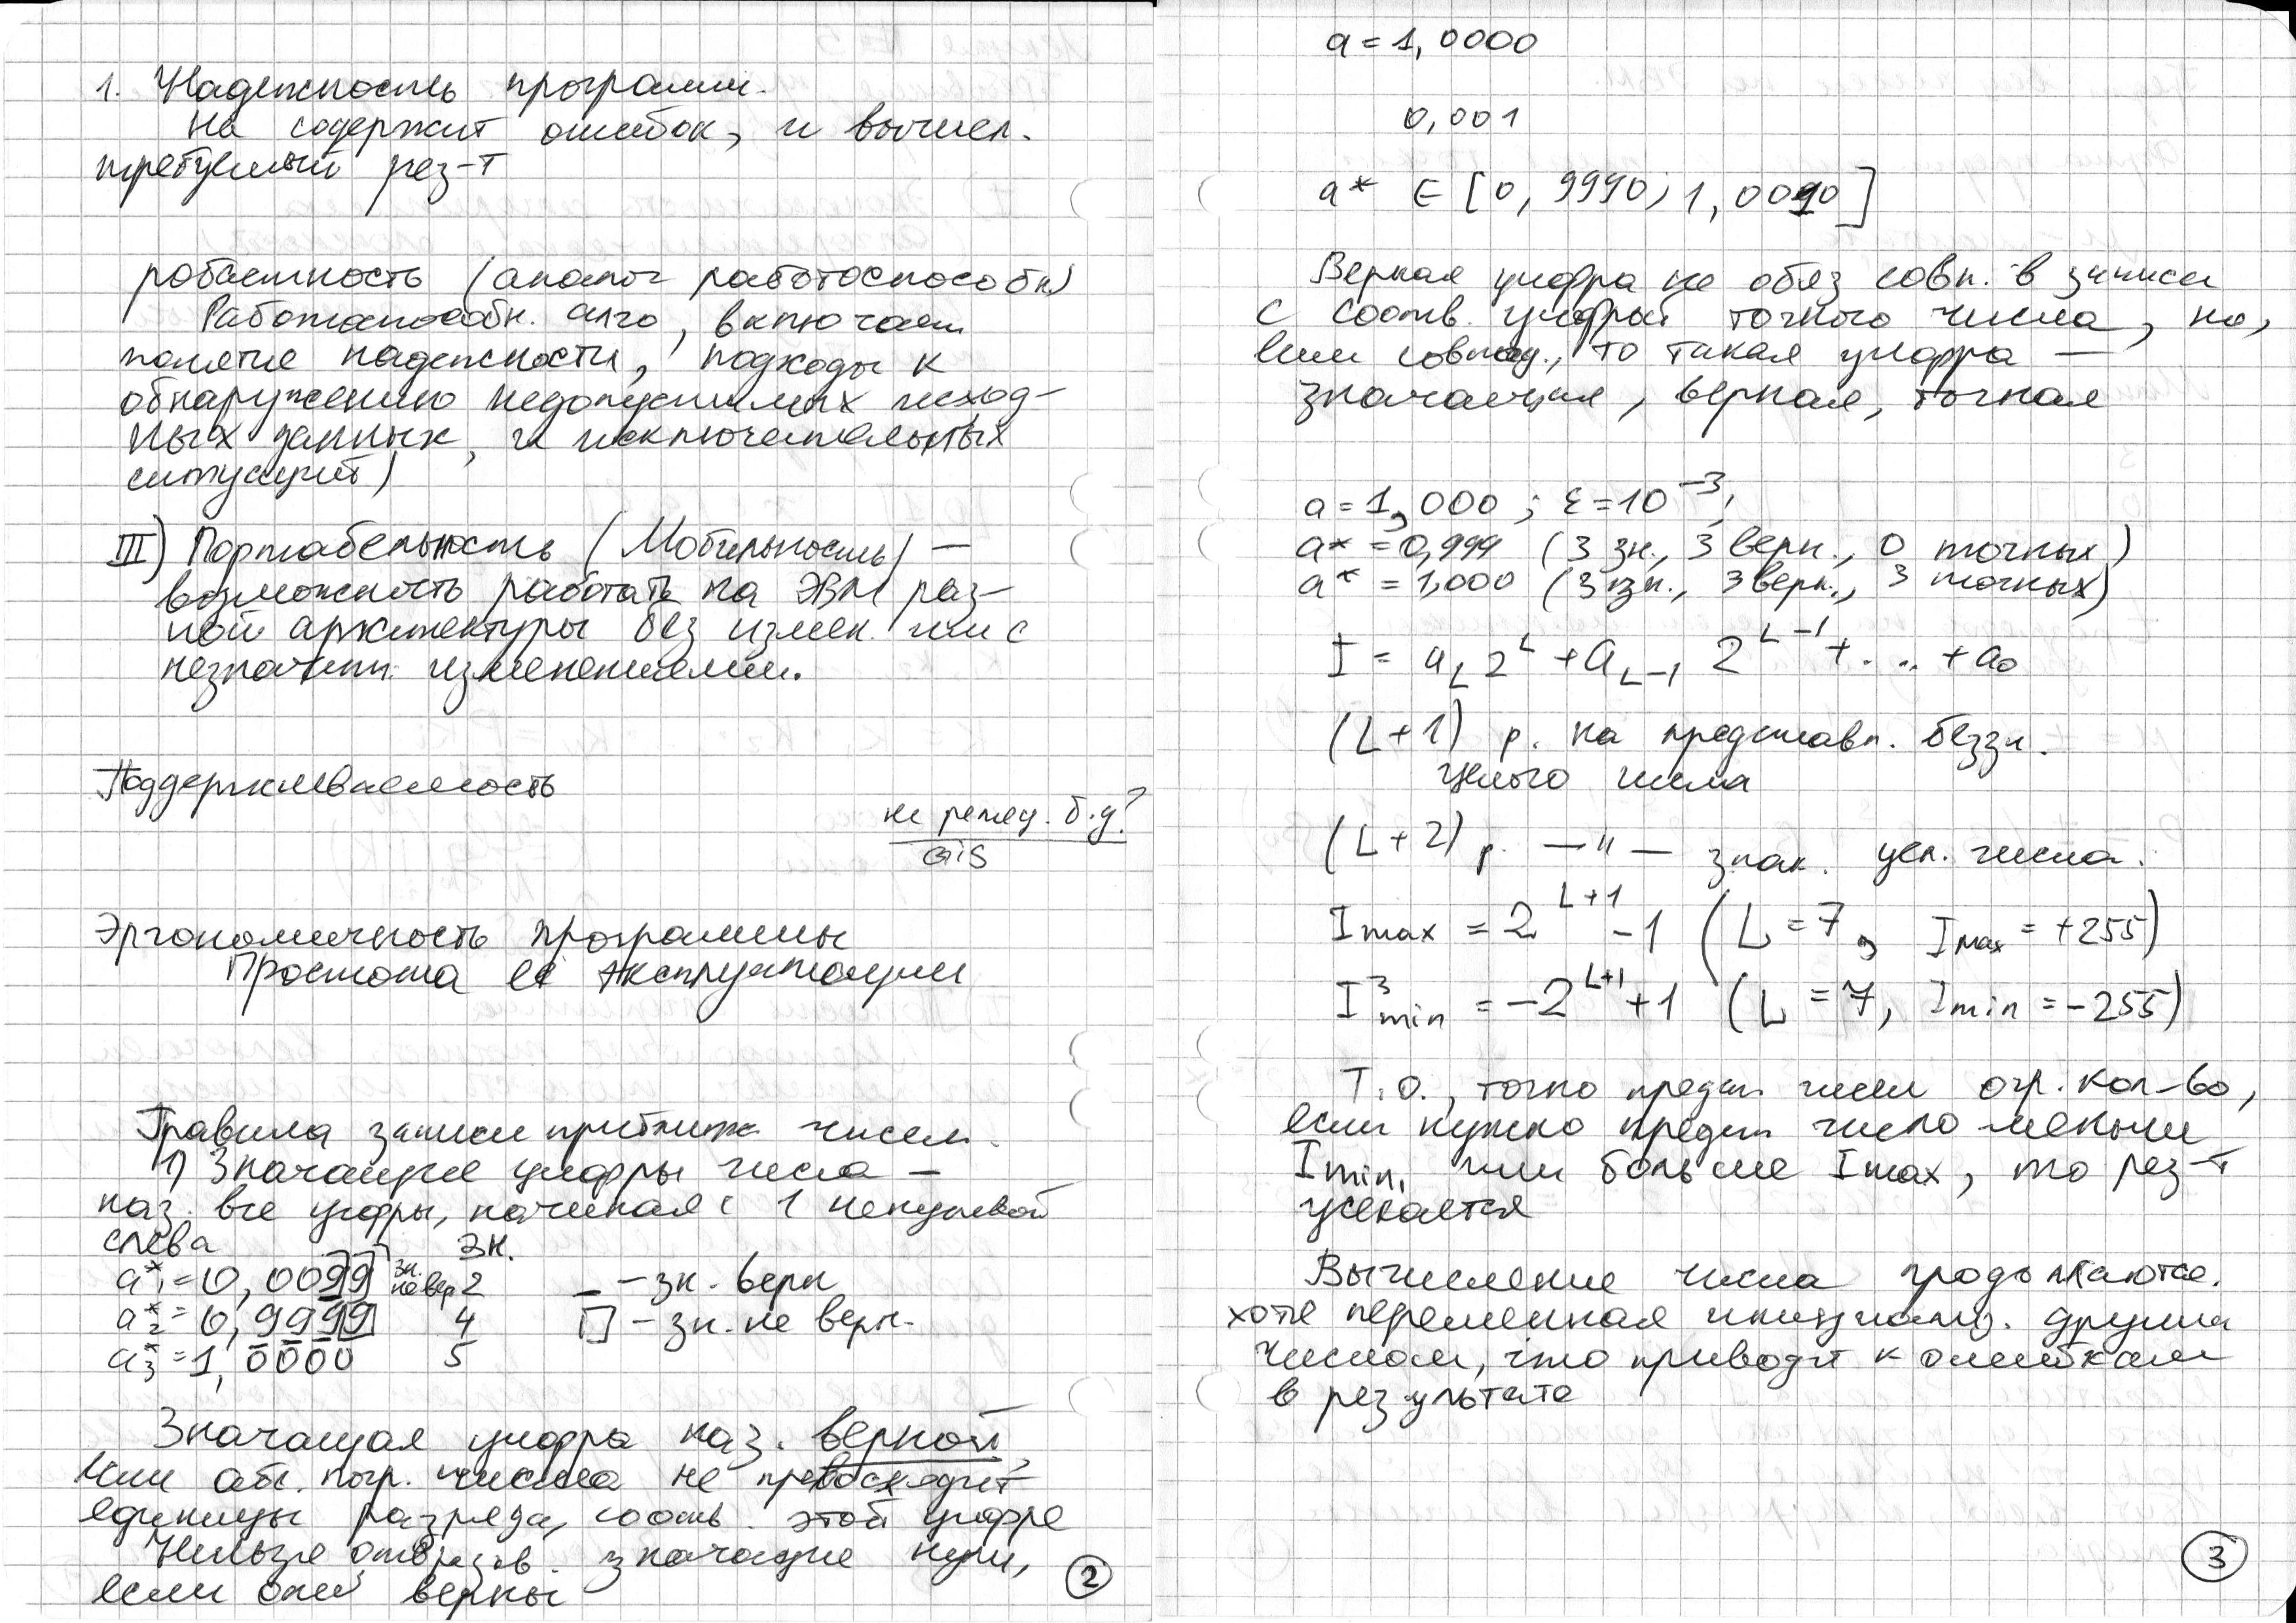 1. Надежность программ.
Не содержит ошибок, и вычисл.
требуемый рез-т
робастность (аналог работоспособн)
Работоспособн. алго, включает
понятие надежности, подходы к
обнаружению недопустимых исход-
ных данных, и исключительных
ситуаций)
III) Портабельность (Мобильность) —
возможность работать на ЭВМ раз-
ной архитектуры без измен. или с
незначит. изменениями.
Поддерживаемость
не реляц. б.д?
GIS
Эргономичность программы
Простота её эксплуатации
Правила записи приближ чисел.
1) Значащие цифры числа —
наз. все цифры, начиная с 1 ненулевой
слева зн.
a*1 = 0,0099 зн. не вер 2 _ — зн. верн
a*2 = 0,9999 4 [] — зн. не верн.
a*3 = 1,0000 5
Значащая цифра наз. верной,
если абс. погр. числа не превосходит
единицы разряда, соотв. этой цифре
Нельзя отбрасыв. значащие нули,
если они верны
2
a = 1,0000
0,001
a* ∈ [0,9990; 1,0010]
Верная цифра не обяз совп. в записи
с соотв. цифрый точного числа, но,
если совпад., то такая цифра —
значащая, верная, точная
a = 1,000; ε = 10^-3;
a* = 0,999 (3 зн., 3 верн., 0 точных)
a* = 1,000 (3 зн., 3 верн., 3 точных)
I = a_L 2^L + a_L-1 2^L-1 + ... + a_0
(L+1) р. на представл. беззн.
целого числа
(L+2) р. —"— знак. цел. числа.
Imax = 2^L+1 - 1 (L = 7, Imax = +255)
I^з min = -2^L+1 + 1 (L = 7, Imin = -255)
Т.о., точно предст. чисел огр. кол-во,
если нужно предст. число меньше
Imin, или больше Imax, то рез-т
усекается
Вычисление числа продолжаются.
хотя переменная инициализ. другим
числом, что приводит к ошибкам
в результате
3